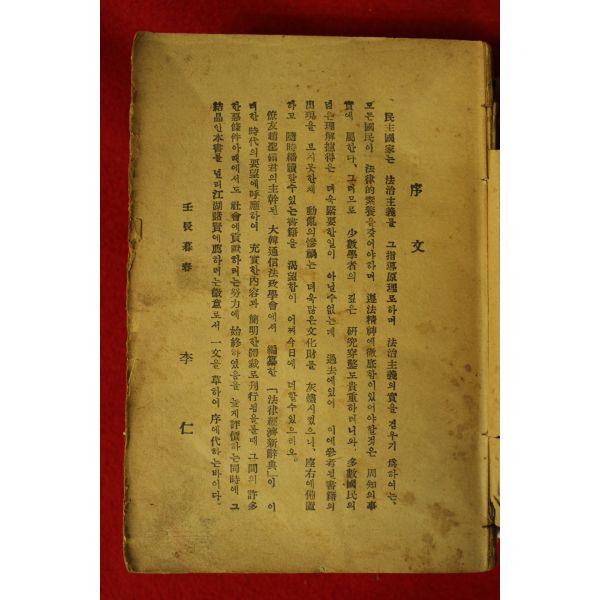 序文
民主國家는 法治主義를 그指導原理로하며 法治主義의實을 거우기 爲하여는,
모든國民이 法律的素養을갖어야하며 遵法精神에徹底함이있어야할것은 周知의事
實에 屬한다. 그러므로 少數學者의 깊은 硏究穿鑿도貴重하려니와, 多數國民의
넓은理解體得은 더욱緊要한일이 아닐수없는데 過去에있어 이에參考될書籍의
出現을 보지못한채 動亂의慘禍는 더욱많은文化財를 灰燼시켰으니, 座右에備置
하고 隨時繙讀할수있는書籍을 渴望함이 어찌今日에 더할수있으리오.
僚友趙 君의主幹된 大韓通信法政學會에서 編纂한 「法律經濟新辭典」이 이
러한 時代의要望에呼應하여 充實한內容과 簡明한體裁로刊行됨을볼때 그間의許多
한惡條件아래에서도 社會에貢獻하려는努力에 始終하였음을 높게評價하는同時에 그
結晶인本書를 널리江湖諸賢에薦하려는微意로서 一文을草하여 序에代하는바이다.
壬辰暮春
李仁